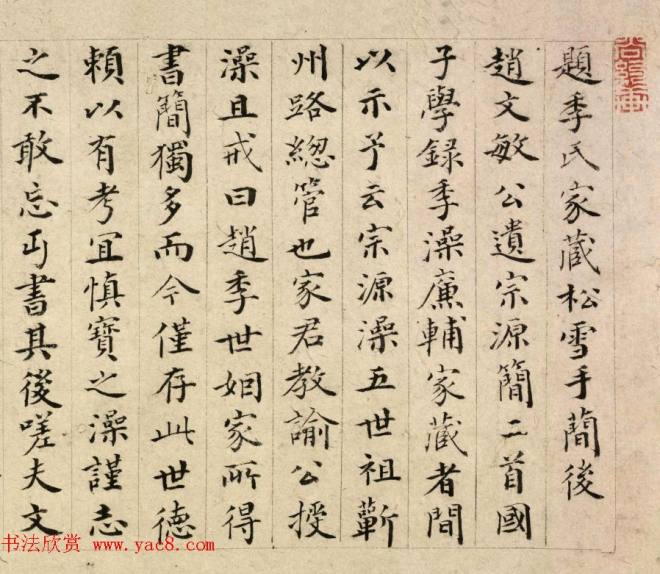 題季氏家藏松雪手蕳後
趙文敏公遺宗源簡二首國
子學録季澡廉輔家藏者間
以示予云宗源澡五世祖蘄
州路總管也家君教諭公授
澡且戒曰趙季世姻家所得
書簡獨多而今僅存此世德
頼以有考宜慎寶之澡謹志
之不敢忘丐書其後嗟夫文
书法欣赏 www.yac8.com